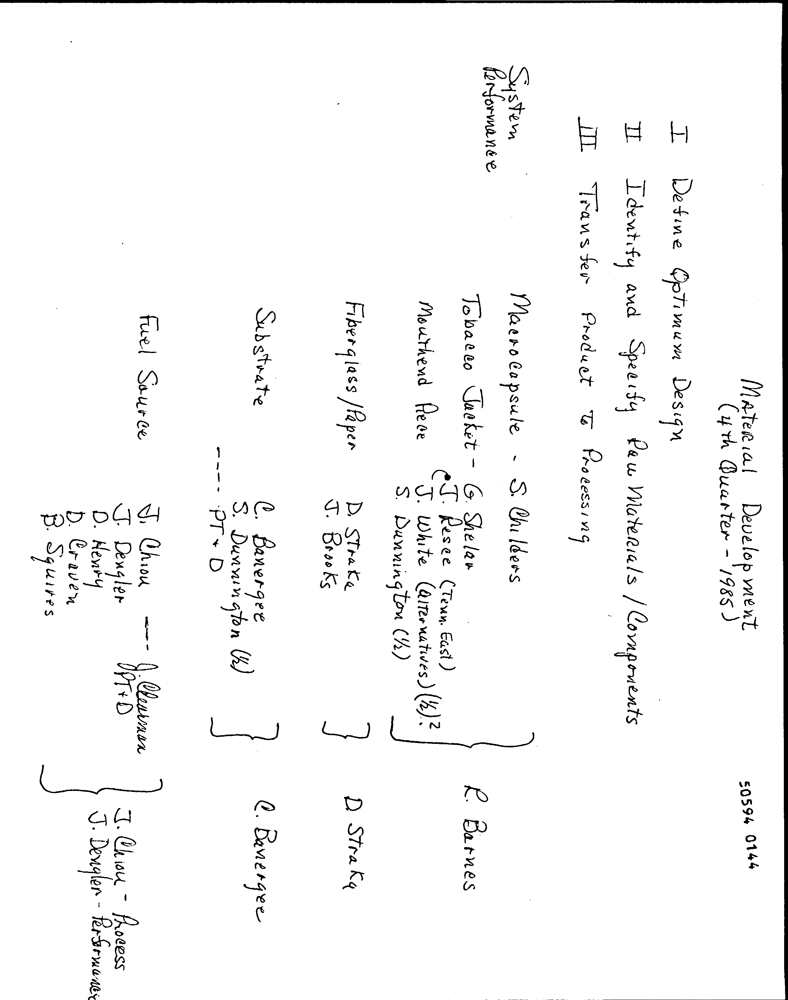 Material Development
(4th Quarter - 1985)
50594 0144
I Define Optimum Design
II Identify and Specify Raw Materials / Components
III Transfer Product To Processing
System
Performance
Macrocapsule - S. Childers
Tobacco Jacket - G. Shelar
Mouthend Piece
J. Resce (Tenn. East)
J. White (alternatives) (1/2)?
S. Dunnington (1/2)
R. Barnes
Fiberglass/Paper
D. Straka
J. Brooks
D Straka
Substrate
C. Banergee
S. Dunnington (1/2)
---- PT + D
C. Banergee
Fuel Source
J. Chiou --- J. Clearman
J. Dengler PT + D
D. Henry
D. Craven
B. Squires
J. Chiou - Process
J. Dengler - Performance